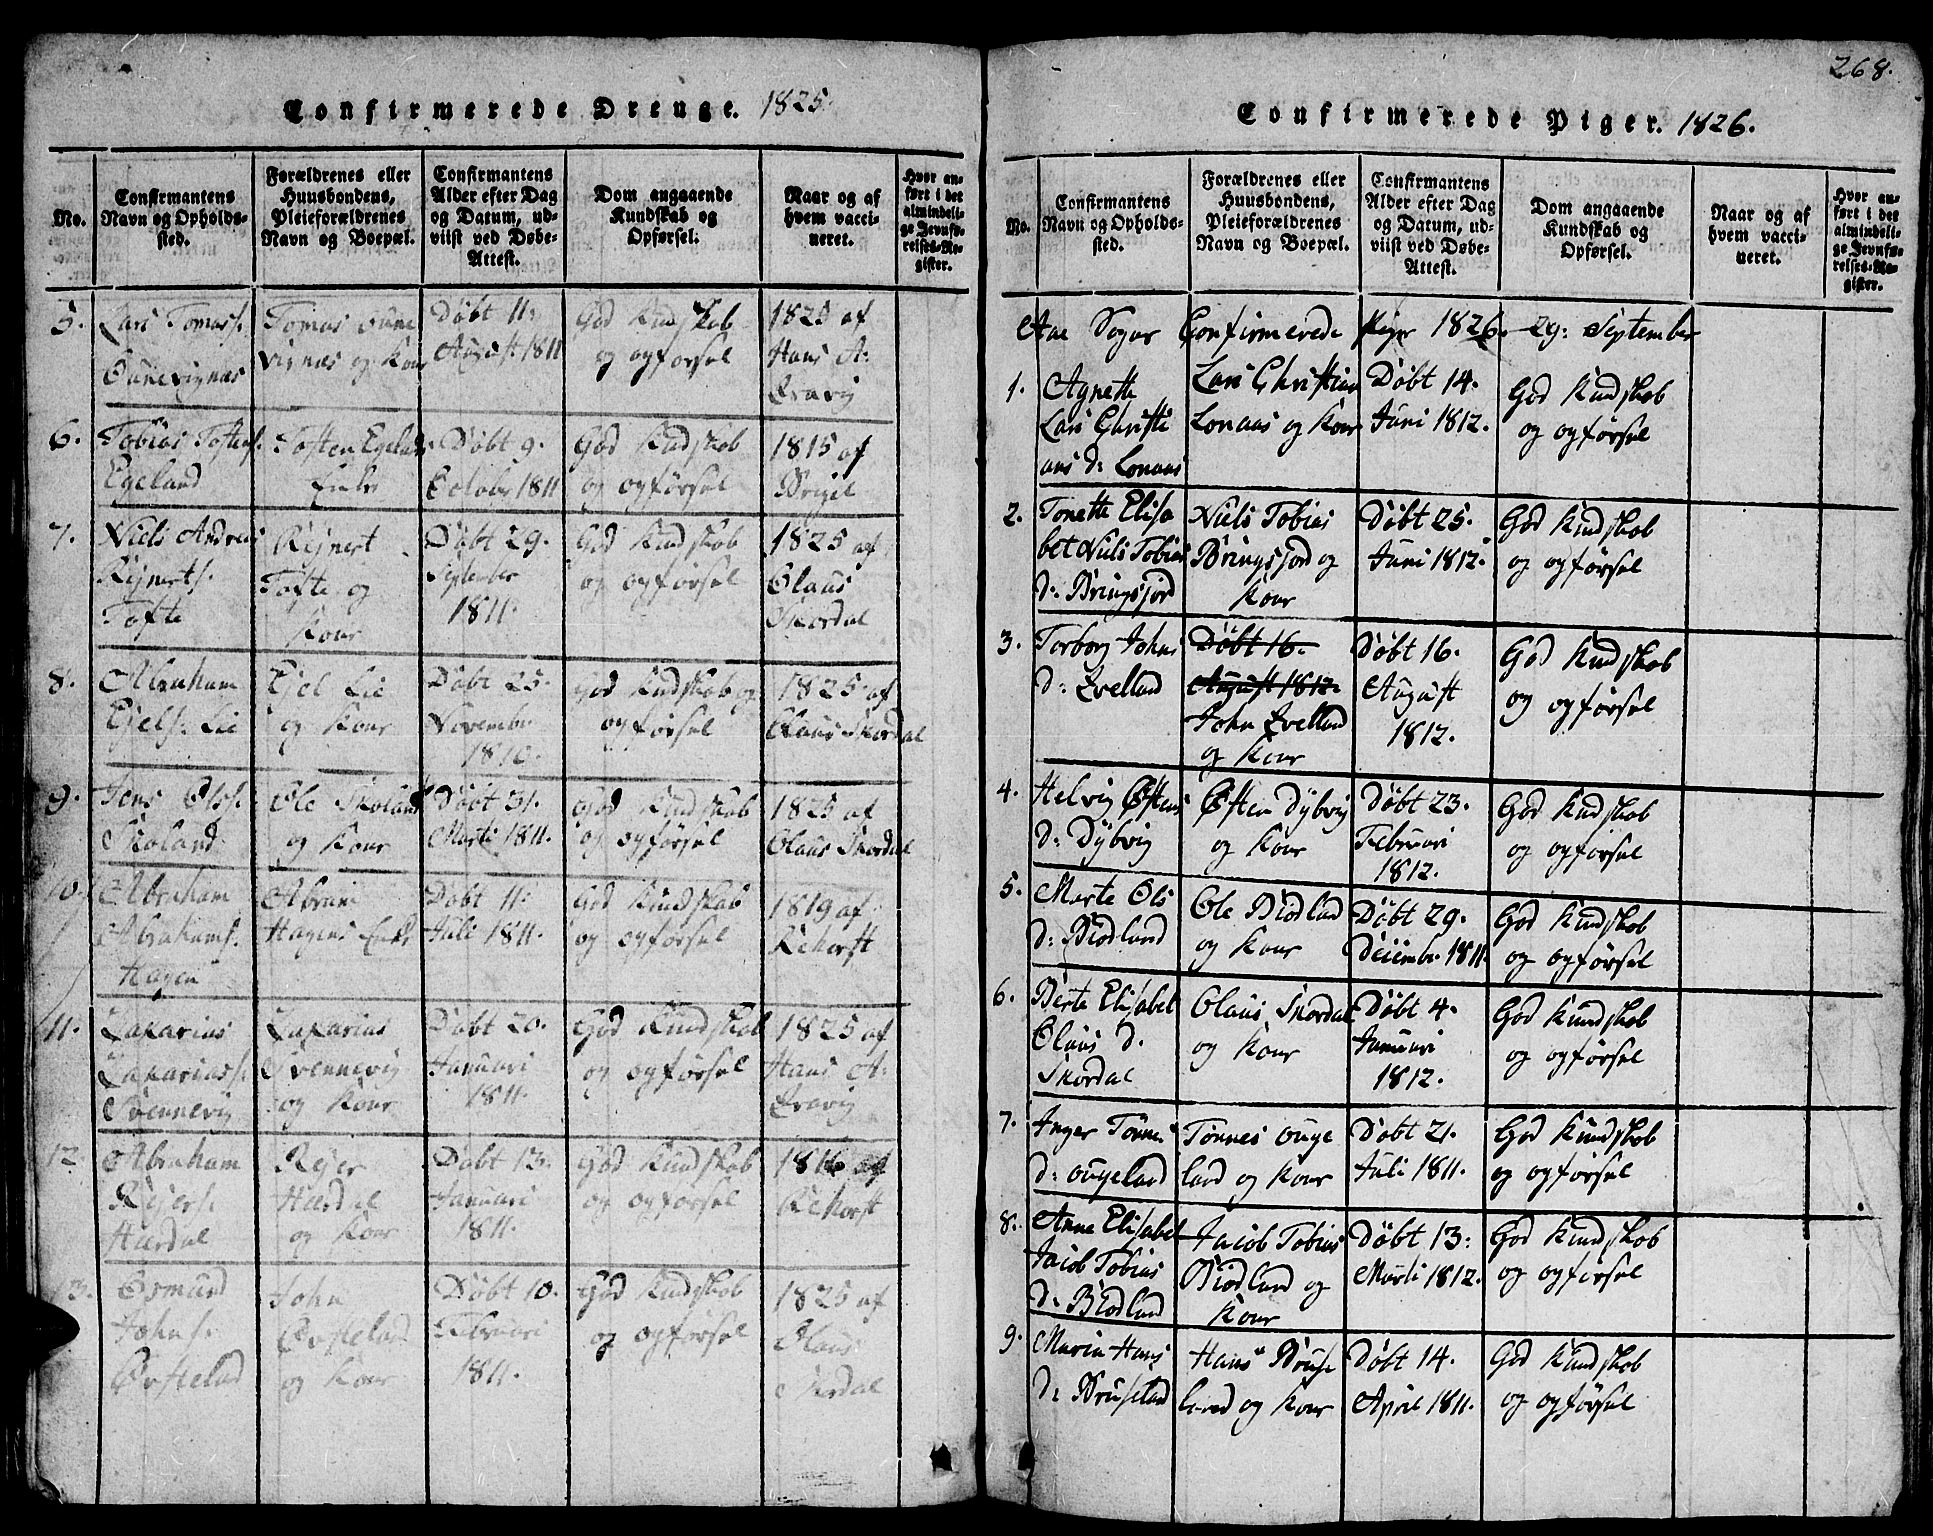 Confirmerede Drenge. 1825.
No.
Confirmantens
Navn og Opholds-
sted.
Forældrenes eller
Huusbondens,
Pleieforældrenes
Navn og Boepæl.
Confirmantens
Alder efter Dag
og Datum, ud-
viist ved Døbe-
Attest.
Dom angaaende
Kundskab og
Opførsel.
Naar og af
hvem vacci-
neret.
Hvor an-
ført i det
almindeli-
ge Jevnfø-
relses-Re-
gister.
5.
Lars Tomass.
Ounevignæs
Tomas Oune
vignæs og Kone
Døbt 11:
August 1811
God Kundskab
og opførsel
1825 af
Hans A:
Evavig
6.
Tobias Tostens.
Egeland
Tosten Egeland
Enke
Døbt 9.
October 1811
God Kundskab
og opførsel
1815 af
Brigel
7.
Niels Andreas
Rejnerts.
Tofte
Rejnert
Tofte og
Kone
Døbt 29.
September
1811.
God Kundskab
og opførsel
1825 af
Olaus
Skordal
8.
Abraham
Ejels: Lie
Ejel Lie
og Kone
Døbt 25.
November
1810.
God Kundskab og
opførsel
1825 af
Olaus Skordal
9.
Jens Ols.
Skoland
Ole Skoland
og Kone
Døbt 31.
Marti 1811.
God Kundskab
og opførsel
1825 af
Olaus Skordal
10.
Abraham
Abrahams.
Hagen
Abram
Hagens Enke
Døbt 11:
Juli 1811.
God Kundskab
og opførsel
1819 af
Rekerft
11.
Zakarias
Zakarias s.
Svennevig
Zakarias
Svennevig
og Kone
Døbt 20.
Januari
1811.
God Kundskab
og opførsel
1825 af
Hans A.
Evavig
12
Abraham
Rejers.
Hærdal
Rejer
Hærdal
og Kone
Døbt 13.
Januari
1811.
God Kundskab
og opførsel
1816 af
Rekerft
13.
Osmund
Johns.
Øvfteland
John
og Kone
Døbt 10.
Februari
1811.
God Kundskab
og opførsel
1825 af
Olaus
Skordal
268.
Confirmerede Piger. 1826.
No.
Confirmantens
Navn og Opholds-
sted.
Forældrenes eller
Huusbondens,
Pleieforældrenes
Navn og Boepæl.
Confirmantens
Alder efter Dag
og Datum, ud-
viist ved Døbe-
Attest.
Dom angaaende
Kundskab og
Opførsel.
Naar og af
hvem vacci-
neret.
Hvor an-
ført i det
almindeli-
ge Jevnfø-
relses-Re-
gister.
Aae Sogns Confirmerede Piger 1826. 29: September
1.
Agnette
Lars Christi
ans d: Lonaas
Lars Christian
Lonaas og Kone
Døbt 14.
Juni 1812.
God Kundskab
og opførsel
2.
Tonette Elisa
bet Niels Tobias
d: Bringsjord
Niels Tobias
Bringsjord og
Kone
Døbt 25.
Juni 1812.
God Kundskab
og opførsel
3.
Torborg Johns
d: Zvelland
Døbt 16.
August 1812.
John Zvelland
og Kone
Døbt 16.
August
1812.
God Kundskab
og opførsel
4.
Helvig Østens
d: Dybvig
Østen Dybvig
og Kone
Døbt 23.
Februari
1812.
God Kundskab
og opførsel
5.
Marte Ols
d: Biodland
Ole Biodland
og Kone
Døbt 29.
December 1811.
God Kundskab
og opførsel
6.
Berte Elisabet
Olaus d.
Skordal
Olaus Skordal
og Kone
Døbt 4.
Januari
1812.
God Kundskab
og opførsel
7.
Inger Tønnes
d: Ougeland
Tønnes Ouge
land og Kone
Døbt 21.
Juli 1811.
God Kundskab
og opførsel
8.
Anne Elisabet
Jacob Tobias
d: Biodland
Jacob Tobias
Biodland og
Kone
Døbt 13:
Marti 1812.
God Kundskab
og opførsel
9.
Maria Hans
d: Bruseland
Hans Bruse
land og Kone
Døbt 14.
April 1811.
God Kundskab
og opførsel